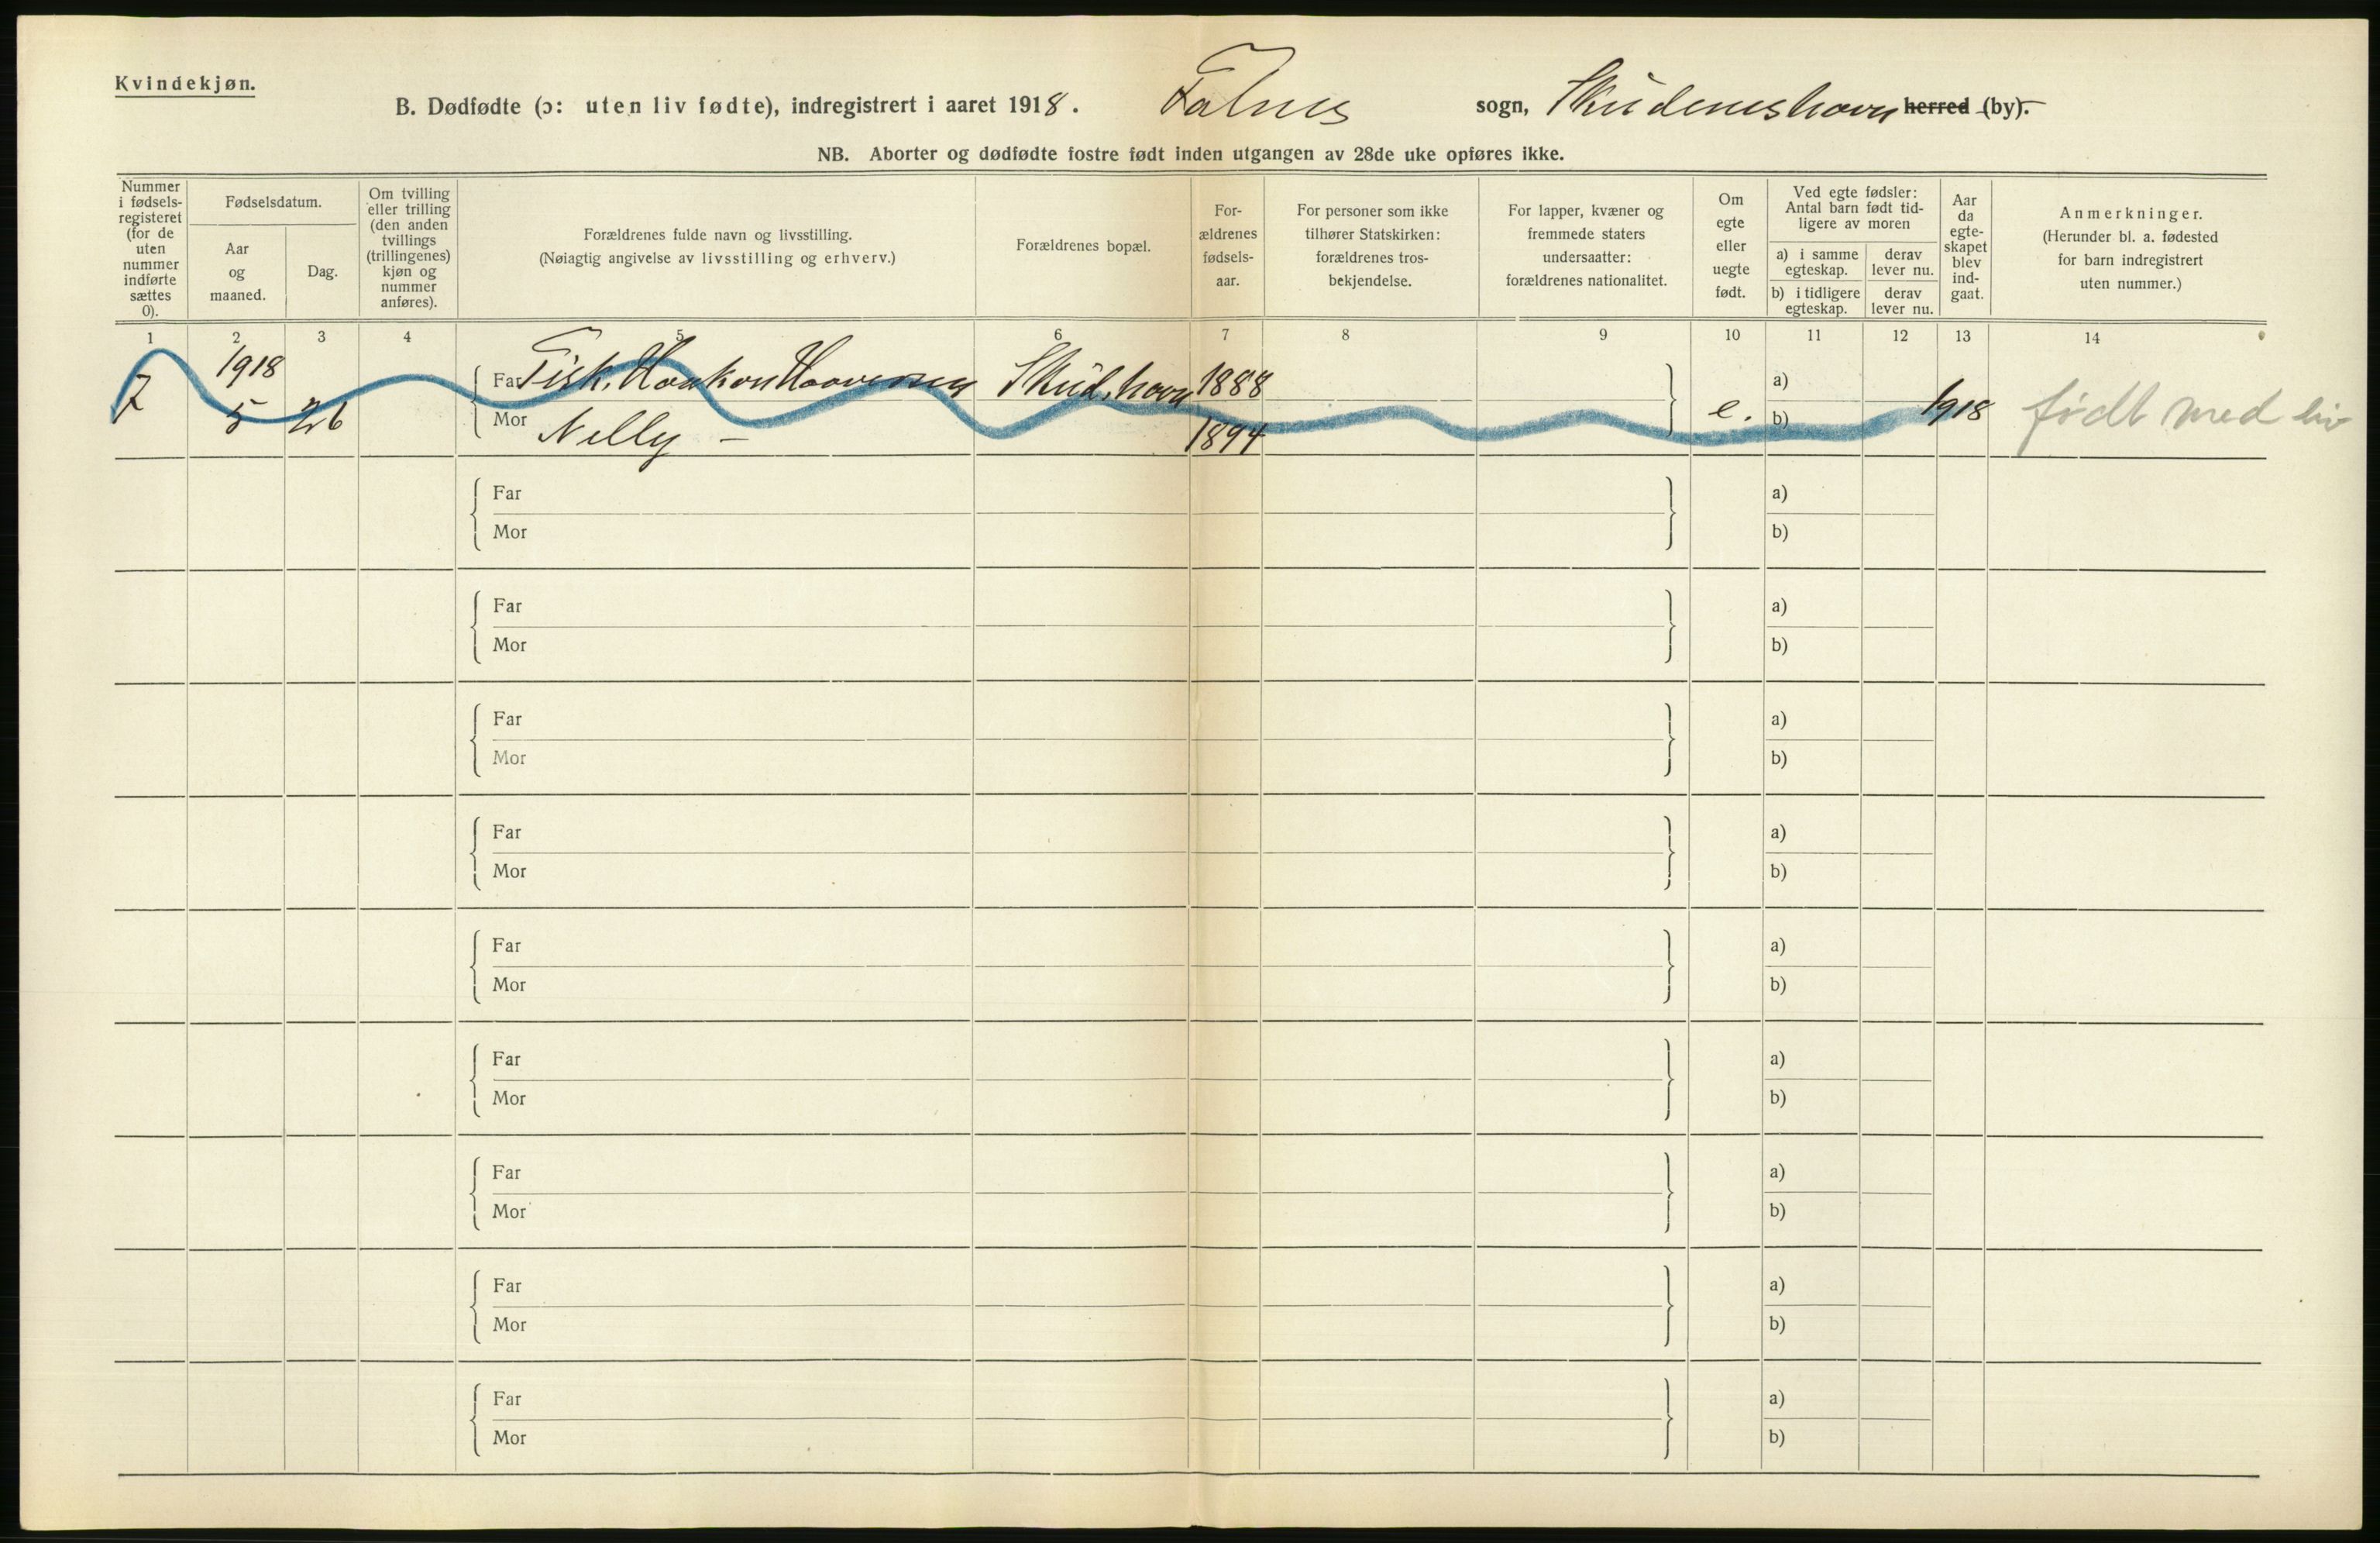 Kvindekjøn.
B. Dødfødte (ɔ: uten liv fødte), indregistrert i aaret 1918. Falnes sogn, Skudeneshavn herred (by).
NB. Aborter og dødfødte fostre født inden utgangen av 28de uke opføres ikke.
Nummer i fødsels-registeret (for de uten nummer indførte sættes 0).
Fødselsdatum.
Aar og maaned.
Dag.
Om tvilling eller trilling (den anden tvillings (trillingenes) kjøn og nummer anføres).
Forældrenes fulde navn og livsstilling.
(Nøiagtig angivelse av livsstilling og erhverv.)
Forældrenes bopæl.
For-ældrenes fødsels-aar.
For personer som ikke tilhører Statskirken: forældrenes tros-bekjendelse.
For lapper, kvæner og fremmede staters undersaatter: forældrenes nationalitet.
Om egte eller uegte født.
Ved egte fødsler: Antal barn født tid-ligere av moren
a) i samme egteskap.
derav lever nu.
b) i tidligere egteskap.
derav lever nu.
Aar da egte-skapet blev ind-gaat.
Anmerkninger.
(Herunder bl. a. fødested for barn indregistrert uten nummer.)
1 2 3 4 5 6 7 8 9 10 11 12 13 14
1918 Far Fisk. Haakon Haaversen Skud.havn 1888 a)
7 5 26 Mor Nelly — 1894 e. b) 1918 født med liv
Far a)
Mor b)
Far a)
Mor b)
Far a)
Mor b)
Far a)
Mor b)
Far a)
Mor b)
Far a)
Mor b)
Far a)
Mor b)
Far a)
Mor b)
Far a)
Mor b)